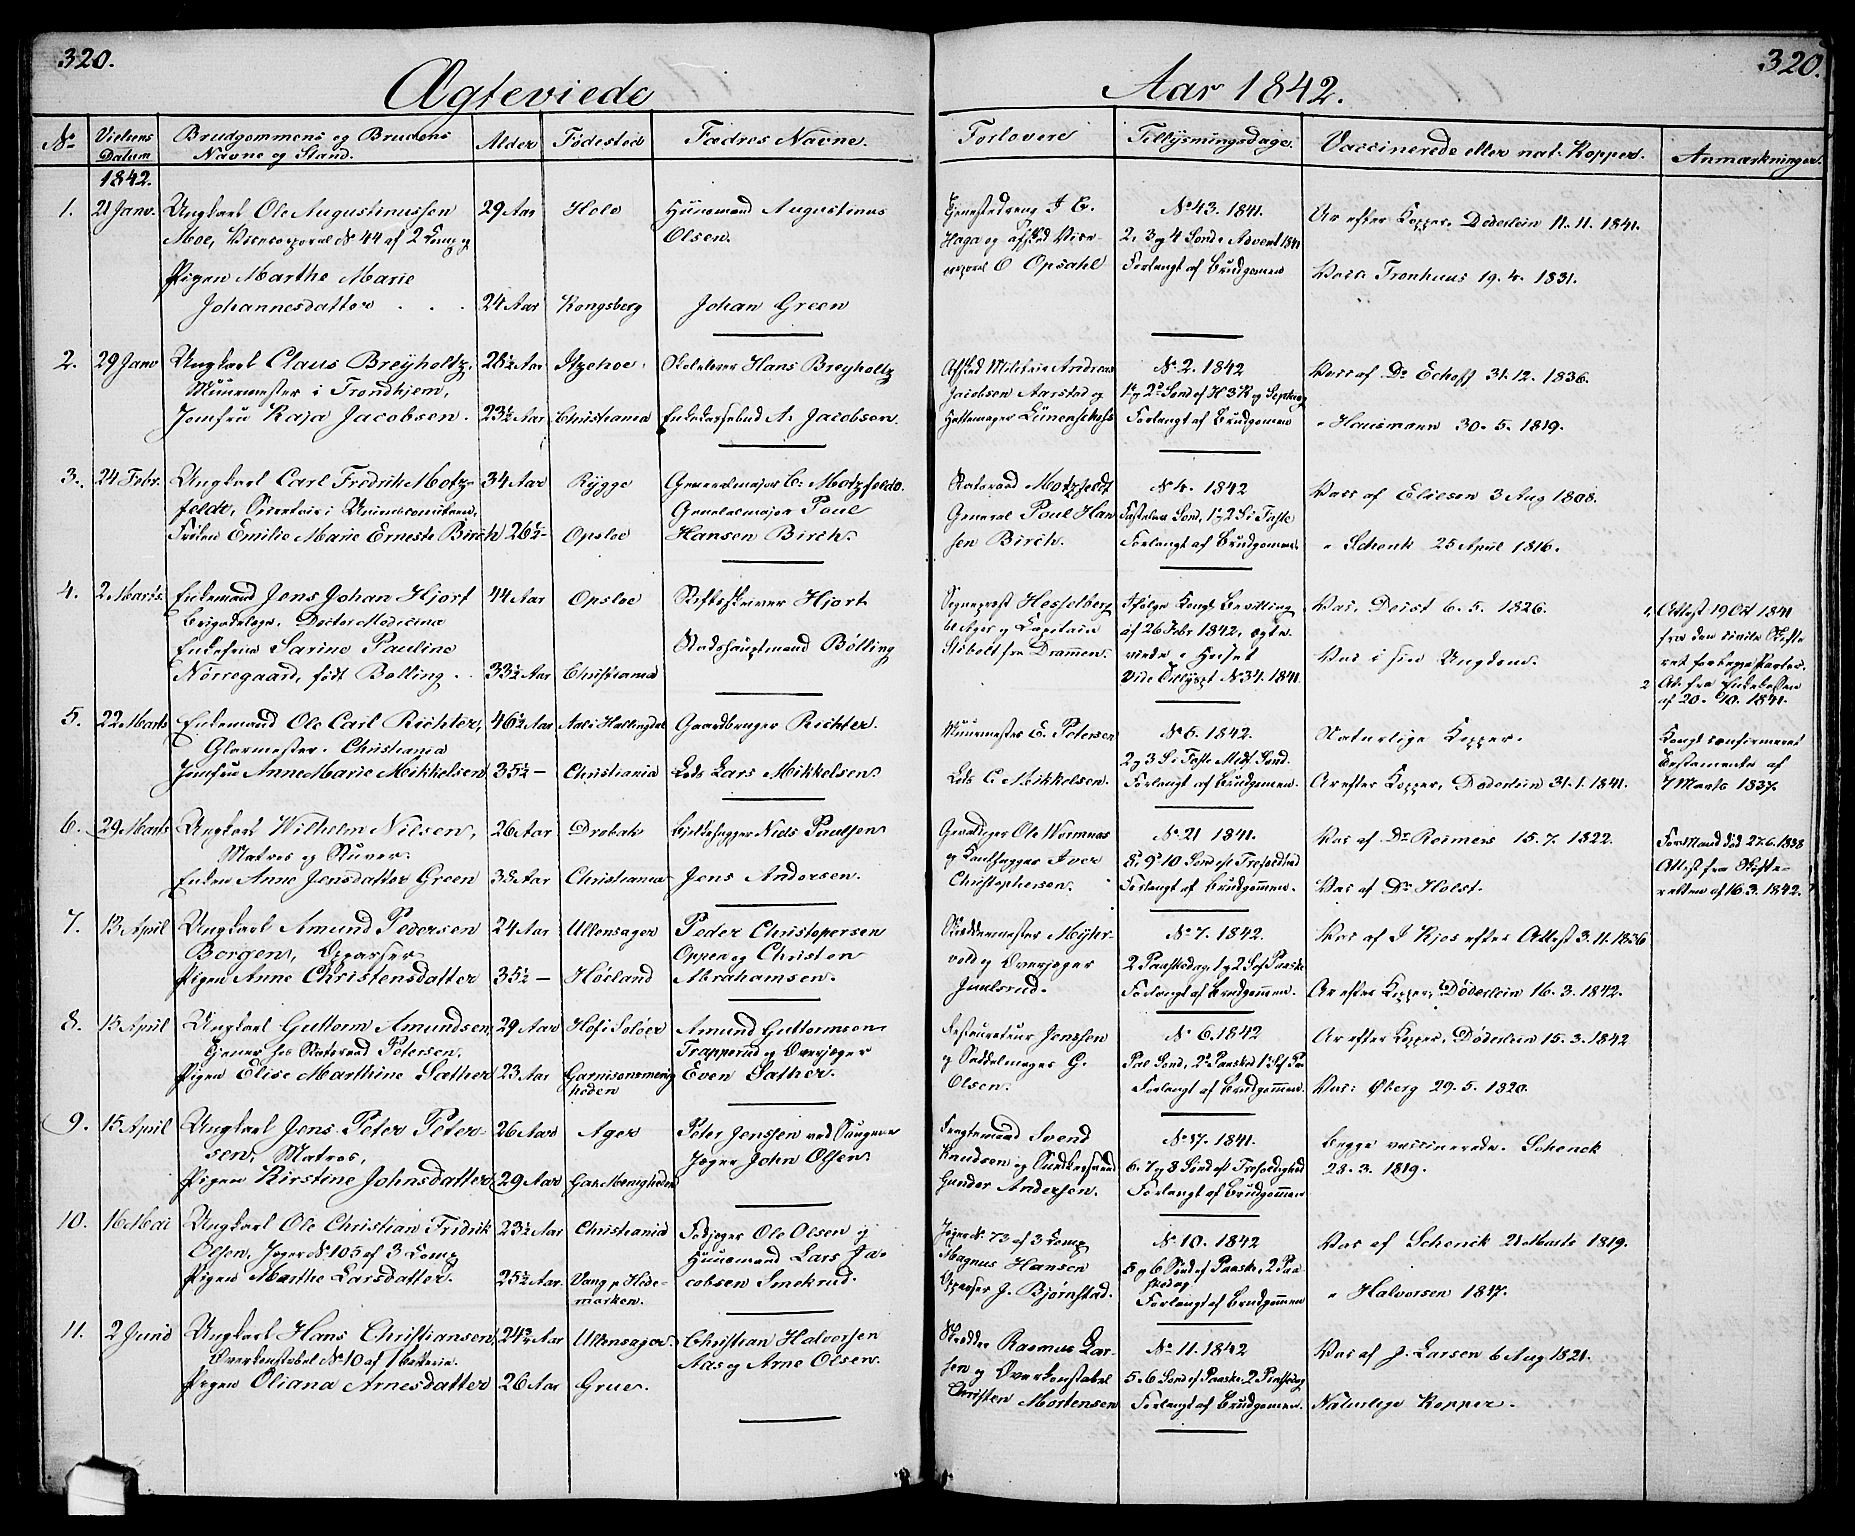 320.
Ægteviede
No
Vielsens Datum
Brudgommens og Brudens Navne og Stand.
Alder
Fødested
Fædres Navne.
1842.
1. 21 Janv. Ungkarl Ole Augustinussen 29 Aar Holo Huusmand Augustinus
Moe, Vicecorporal No 44 af 2 Comp. og Olsen.
Pigen Marthe Marie
Johannesdatter 24 Aar Kongsberg Johan Green
2. 29 Janv Ungkarl Claus Breyholtz, 28½ Aar Itzehoe. Hans Breyholtz
Muurmester i Trondhjem,
Jomfru Kaja Jacobsen. 23½ Aar Christiania A. Jacobsen.
3. 24 Febr. Ungkarl Carl Fredrik Motz- 34 Aar Rygge Generalmajor C. Motzfeldt.
feldt, Generalmajor Paul
Frøken Emilie Marie Erneste Birch 26½ – Opsloe Hansen Birch.
4. 2 Marts. Enkemand Jens Johan Hjort 44 Aar Opsloe Stiftsskriver Hjort
Brigadelæge. Doctor Medicina
Enkefrue Sarine Pauline Stadshauptmand Bölling
Nørregaard, født Bølling 33½ Aar Christiania
5. 22 Marts Enkemand Ole Carl Richter, 46½ Aar Aal i Hallingdal Gaardbruger Richter.
Glarmester. Christiania
Jomfru Anne Marie Mikkelsen 35½ – Christiania Lods Lars Mikkelsen.
6. 29 Marts Ungkarl Wilhelm Nilsen, 26 Aar Drøbak Niels Paulsen
Matros og Stuver.
Enken Anne Jensdatter Green 38 Aar Christiania Jens Andersen.
7. 13 April Ungkarl Amund Pedersen 24 Aar Ullensager Peder Christopersen
Borgen, Opvarter Oppen og Christen
Pigen Anne Christensdatter 35½ – Høiland Abrahamsen.
8. 15 April Ungkarl Guttorm Amundsen 29 Aar Hof i Soløer Amund Guttormsen
Tjener hos Statsraad Petersen. Trapperud og Overjæger
Pigen Elise Marthine Sæther 23 Aar Garnisonsmenig- Even Sæther.
heden
9. 15 April Ungkarl Jens Peter Peter- 26 Aar Ager Peter Jenssen ved Saugene
sen, Matros, Jæger John Olsen.
Pigen Kirstine Johnsdatter 29 Aar Gar: Menigheden
10. 16 Mai Ungkarl Ole Christian Fridrik 23½ Aar Christiania Fodjæger Ole Olsen og
Olsen, Jæger No 105 af 3 Comp Huusmand Lars Ja-
Pigen Marthe Larsdatter. 25½ Aar Vang p. Hede- cobsen Smekrud.
marken.
11. 2 Junii Ungkarl Hans Christiansen 24½ Aar Ullensager. Christian Halvorsen
Overkonstabel No 10 af 1 batterie. Aas og Arne Olsen.
Pigen Oliana Arnesdatter 26 Aar Grue.
320.
Aar 1842.
Forlovere
Tillysningsdage.
Vaccinerede eller nat. Kopper.
Anmærkninger.
Tjenestedreng J E. No 43. 1841. Ar efter Kopper. Døderlein 11. 11. 1841.
Haga og afsked Vice- 2, 3 og 4 Sønd. Advent 1841
corporal O Opsahl Forlangt af Brudgomen Vacc. Tronhuus 19. 4. 1831.
Afsked Militair Andreas No 2. 1842 Vacc af Dr Echoff 31. 12. 1836.
Jacobsen Aarstad og
Hattemager Forlangt af Brudgomen " Hausmann 30. 5. 1819.
Statsraad Motzfeldt No 4. 1842 Vacc af Elieson 3 Aug 1808.
General Paul Han- Fastelav. Sønd, 1 og 2 S i Faste
sen Birch. Forlangt af Brudgomen. " Schenk 25 April 1816.
Sognepræst Hesselberg Ifølge Kongl Bevilling Vac. Deist 6. 5. 1826. 1. Attest 19 Oct 1841
til Ager og Capitain af 26 Febr 1842, ægte fra den civile Skifte
Sibolt fra Drammen. viede i Huset Vac i sin Ungdom. ret
Vide Tillyst No 34. 1841 2 At. fra Enkekassen
af 20. 10. 1841.
Muurmester E. Petersen No 5. 1842. Naturlige Kopper. Kongl confirmeret
2 og 3 S i Faste Midf. Sønd. Testamente af
Lods C. Mikkelsen. Forlangt af Brudgomen. Ar efter Kopper, Døderlein 31. 1. 1841. 7 Marts 1837.
Gevaldiger Ole Wormnæs No 21 1841. Vac af Dr Reimers 15. 7. 1822. For. Mand død 27.6.1838
og Iver 8, 9 og 10 Sønd eft Trefoldhed Attest fra Skifte-
Christophersen. Forlangt af Brudgommen. Vac af Dr Holst. retten af 16. 3. 1842.
Skræddermester Myhr- No 7. 1842. Vac af J Kjos efter Attest 3. 11. 1836
vold og Overjæger 2 Paaskedag, 1 og 2 S ef Paaske
Juulsrud. Forlangt af Brudgommen. Ar efter Kopper, Døderlein 16. 3. 1842.
Restaurateur Jenssen No 6. 1842 Ar efter Kopper, Døderlein 15. 3. 1842
og Saddelmager G. Pal Sønd, 2 Paasked 1 S. ef Paa
Olsen. Forlangt af Brudgommen. Vac: Øberg 29. 5. 1820.
Fragtemand Svend No 17. 1841. begge vaccinerede. Schenck
Knudsen og 6. 7 og 8 Sønd eft Trefoldighed 28. 3. 1819.
Gunder Andersen. Forlangt af Brudgommen
Jæger No 73 af 3 Comp No 10. 1842 Vac af Schenck 21 Marts 1819.
Magnus Hansen 5 og 6 Sønd ef Paaske, 2 Paa-
skedag
Opvarter J. Bjørnstad. Forlangt af Brudgommen " Halvorsen 1817.
Skrædder Rasmus Lar- No 11. 1842 Vac af J. Larsen 6 Aug 1821.
sen og Overkonstabel 5 og 6 Sønd ef Paaske, 2 Pintsedag
Christen Mortensen Forlangt af Brudgomen. Naturlige Kopper.